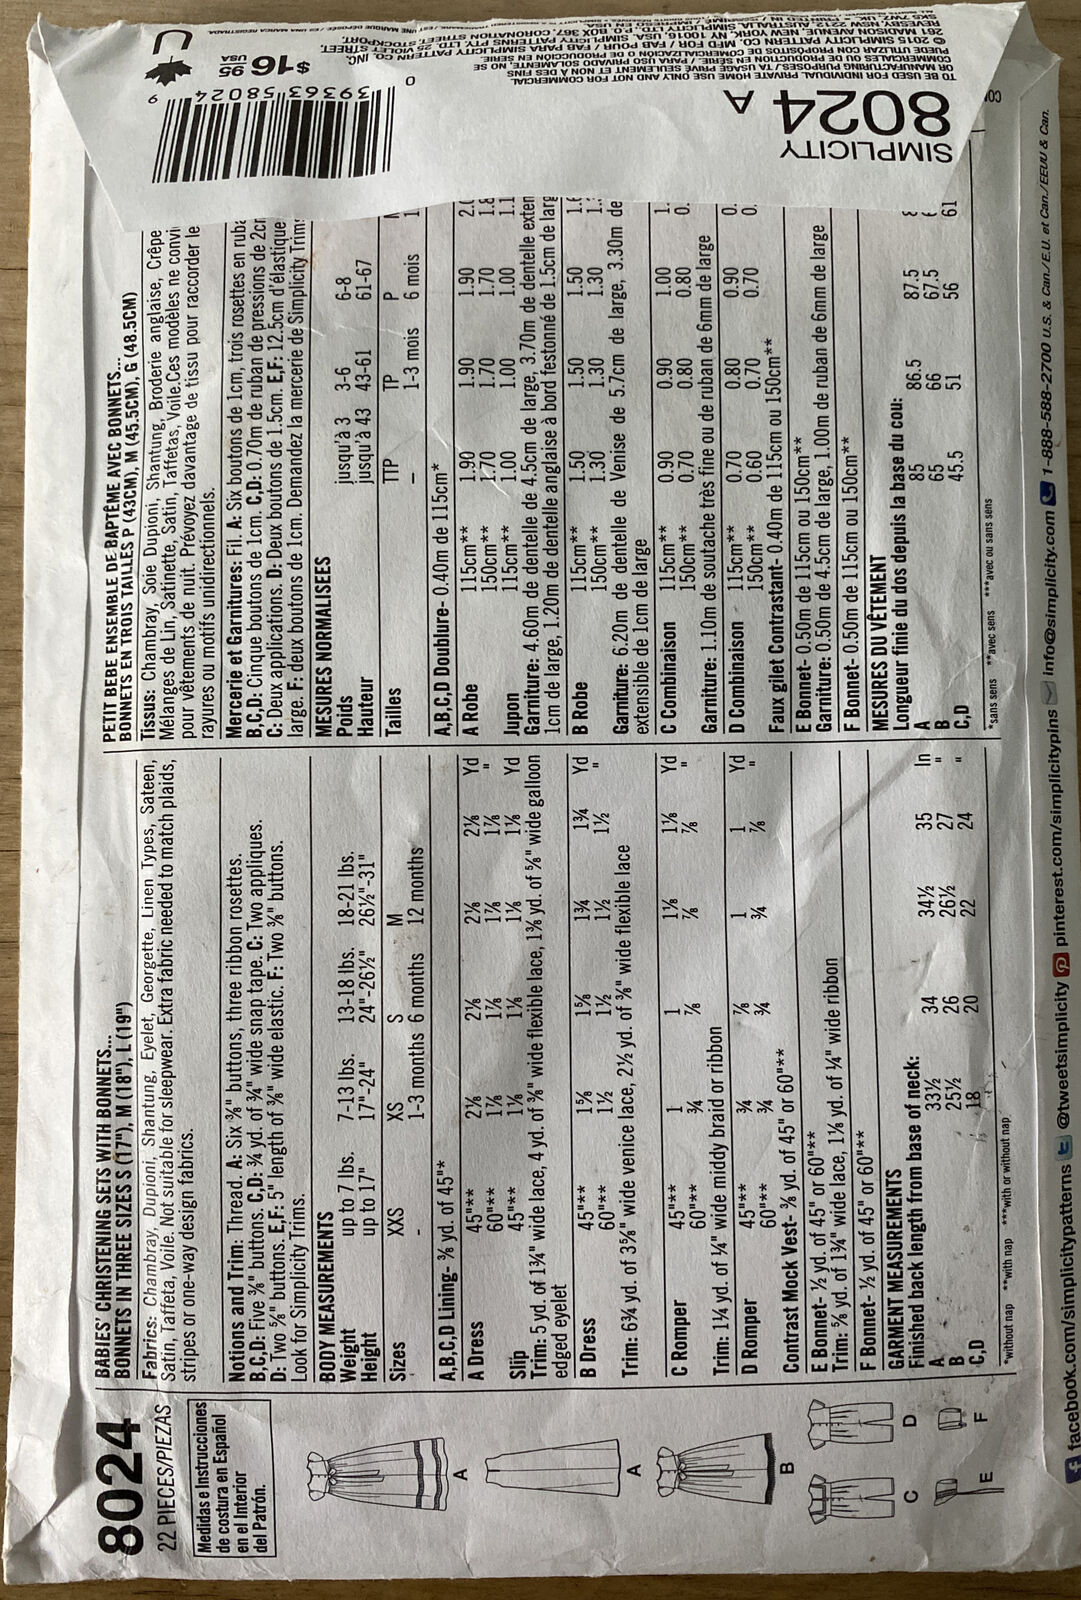 8024
22 PIECES/PIEZAS
Medidas e Instrucciones
de costura en Español
en el Interior
del Patrón.
A
A
B
C
D
E
F
BABIES' CHRISTENING SETS WITH BONNETS...
BONNETS IN THREE SIZES S (17"), M (18"), L (19")
Fabrics: Chambray, Dupioni, Shantung, Eyelet, Georgette, Linen Types, Sateen,
Satin, Taffeta, Voile. Not suitable for sleepwear. Extra fabric needed to match plaids,
stripes or one-way design fabrics.
Notions and Trim: Thread. A: Six ⅜" buttons, three ribbon rosettes.
B,C,D: Five ⅜" buttons. C,D: ¾ yd. of ¾" wide snap tape. C: Two appliques.
D: Two ⅝" buttons. E,F: 5" length of ⅜" wide elastic. F: Two ⅜" buttons.
Look for Simplicity Trims.
BODY MEASUREMENTS
Weight up to 7 lbs. 7-13 lbs. 13-18 lbs. 18-21 lbs.
Height up to 17" 17"-24" 24"-26½" 26½"-31"
Sizes XXS XS S M
- 1-3 months 6 months 12 months
A,B,C,D Lining- ⅜ yd. of 45"*
A Dress 45"** 2⅛ 2⅛ 2⅛ 2⅛ Yd
60"** 1⅞ 1⅞ 1⅞ 1⅞ "
Slip 45"** 1⅛ 1⅛ 1⅛ 1⅛ Yd
Trim: 5 yd. of 1¾" wide lace, 4 yd. of ⅜" wide flexible lace, 1⅜ yd. of ⅝" wide galloon
edged eyelet
B Dress 45"** 1⅝ 1⅝ 1¾ 1¾ Yd
60"** 1½ 1½ 1½ 1½ "
Trim: 6¾ yd. of 3⅝" wide venice lace, 2½ yd. of ⅜" wide flexible lace
C Romper 45"** 1 1 1⅛ 1⅛ Yd
60"** ¾ ⅞ ⅞ ⅞ "
Trim: 1¼ yd. of ¼" wide middy braid or ribbon
D Romper 45"** ¾ ⅞ 1 1 Yd
60"** ¾ ¾ ¾ ⅞ "
Contrast Mock Vest- ⅜ yd. of 45" or 60"**
E Bonnet- ½ yd. of 45" or 60"**
Trim: ⅝ yd. of 1¾" wide lace, 1⅛ yd. of ¼" wide ribbon
F Bonnet- ½ yd. of 45" or 60"**
GARMENT MEASUREMENTS
Finished back length from base of neck:
A 33½ 34 34½ 35 In
B 25½ 26 26½ 27 "
C,D 18 20 22 24 "
*without nap **with nap ***with or without nap
PETIT BEBE ENSEMBLE DE BAPTÊME AVEC BONNETS...
BONNETS EN TROIS TAILLES P (43CM), M (45.5CM), G (48.5CM)
Tissus: Chambray, Soie Dupioni, Shantung, Broderie anglaise, Crêpe
Mélanges de Lin, Satinette, Satin, Taffetas, Voile.Ces modèles ne convi
pour vêtements de nuit. Prévoyez davantage de tissu pour raccorder le
rayures ou motifs unidirectionnels.
Mercerie et Garnitures: Fil. A: Six boutons de 1cm, trois rosettes en ruba
B,C,D: Cinque boutons de 1cm. C,D: 0.70m de ruban de pressions de 2cm
C: Deux applications. D: Deux boutons de 1.5cm. E,F: 12.5cm d'élastique
large. F: deux boutons de 1cm. Demandez la mercerie de Simplicity Trims
MESURES NORMALISEES
Poids jusqu'à 3 3-6 6-8
Hauteur jusqu'à 43 43-61 61-67
Tailles TTP TP P
– 1-3 mois 6 mois 1
A,B,C,D Doublure- 0.40m de 115cm*
A Robe 115cm** 1.90 1.90 1.90
150cm** 1.70 1.70 1.70
Jupon 115cm** 1.00 1.00 1.00
Garniture: 4.60m de dentelle de 4.5cm de large, 3.70m de dentelle exten
1cm de large, 1.20m de dentelle anglaise à bord festonné de 1.5cm de larg
B Robe 115cm** 1.50 1.50 1.50
150cm** 1.30 1.30 1.30
Garniture: 6.20m de dentelle de Venise de 5.7cm de large, 3.30m de
extensible de 1cm de large
C Combinaison 115cm** 0.90 0.90 1.00
150cm** 0.70 0.80 0.80
Garniture: 1.10m de soutache très fine ou de ruban de 6mm de large
D Combinaison 115cm** 0.70 0.80 0.90
150cm** 0.60 0.70 0.70
Faux gilet Contrastant- 0.40m de 115cm ou 150cm**
E Bonnet- 0.50m de 115cm ou 150cm**
Garniture: 0.50m de 4.5cm de large, 1.00m de ruban de 6mm de large
F Bonnet- 0.50m de 115cm ou 150cm**
MESURES DU VÊTEMENT
Longueur finie du dos depuis la base du cou:
A 85 86.5 87.5
B 65 66 67.5
C,D 45.5 51 56 61
*sans sens **avec sens ***avec ou sans sens
facebook.com/simplicitypatterns @tweetsimplicity pinterest.com/simplicitypins info@simplicity.com 1-888-588-2700 U.S. & Can./E.U. et Can./EEUU & Can.
SIMPLICITY
8024 A
TO BE USED FOR INDIVIDUAL PRIVATE HOME USE ONLY AND NOT FOR COMMERCIAL
OR MANUFACTURING PURPOSES./ USAGE PRIVÉ SEULEMENT ET NON À DES FINS
COMMERCIALES OU DE PRODUCTION EN SÉRIE. / PARA USO PRIVADO SOLAMENTE, NO SE
PUEDE UTILIZAR CON PROPOSITOS DE COMERCIALIZACION O DE PRODUCCION EN SERIE.
© 2015 SIMPLICITY PATTERN CO. MFD FOR / FAB POUR / FAB PARA SIMPLICITY PATTERN CO. INC.
261 MADISON AVENUE, NEW YORK, NY 10016, USA. SIMPLICITY PATTERNS PTY. LTD. 25 VIOLET STREET,
REVESBY, NSW 2212 AUSTRALIA. SIMPLICITY LTD. P.O. BOX 367, CORONATION STREET, STOCKPORT,
SK5 7WZ, UK.
0 39363 58024 9
$16.95
USA